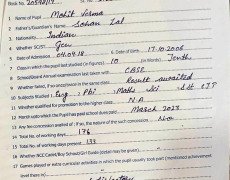 Book No.
1. Name of Pupil Mohit Verma
2. Father's/Guardian's Name Sohan Lal
3. Nationality Indian
4. Whether SC/ST Gen
5. Date of Admission 04.04.18 6. Date of Birth 17-10-2006
7. Class in which the pupil last studied (in figures) 10 (in words) Tenth
8. School/Board Annual examination last taken with CBSE
9. Whether failed, if so once/twice in the same class Result awaited
10. Subjects Studied Eng Pbi Maths Sci S.St IT
11. Whether qualified for promotion to the higher class N.A
12. Month upto which the Pupil has paid school dues March 2023
13. Any fee concession availed of: if so, the nature of such concession No
14. Total No. of working days 176
15. Total No. of days present
16. Whether NCC Cadet/Boy Scout/Girl Guide (details may be given)
17. Games played or extra curricular activities in which the pupil usually took part (mentioned achievement level therein)